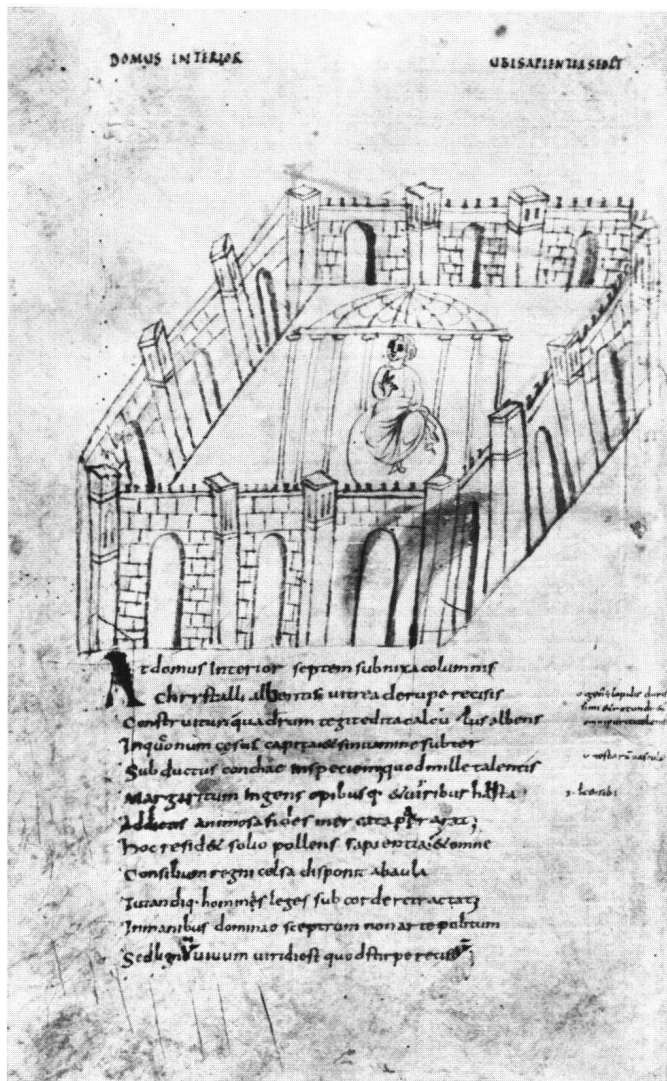 DOMUS INTERIOR UBI SAPIENTIA SEDET
At domus interior septem subnixa columnis
Chrystalli albentis uitrea de rupe recisis
Construitur quadrum tegit edita calculus albens
In quonum cesus capita & sinuamine subter
Subductus conchae in speciem quod mille talentis
Margaritum ingens opibusq & uiribus hasta
Addictis animosa fides
hoc resid& solio pollens sapientia & omne
Consilium regni celsa disponit ab aula
Tutandiq hominis leges sub corde retractat;
In manibus dominae sceptrum non arte politum
Sed ligno uiuum uiridi est quod stirpe